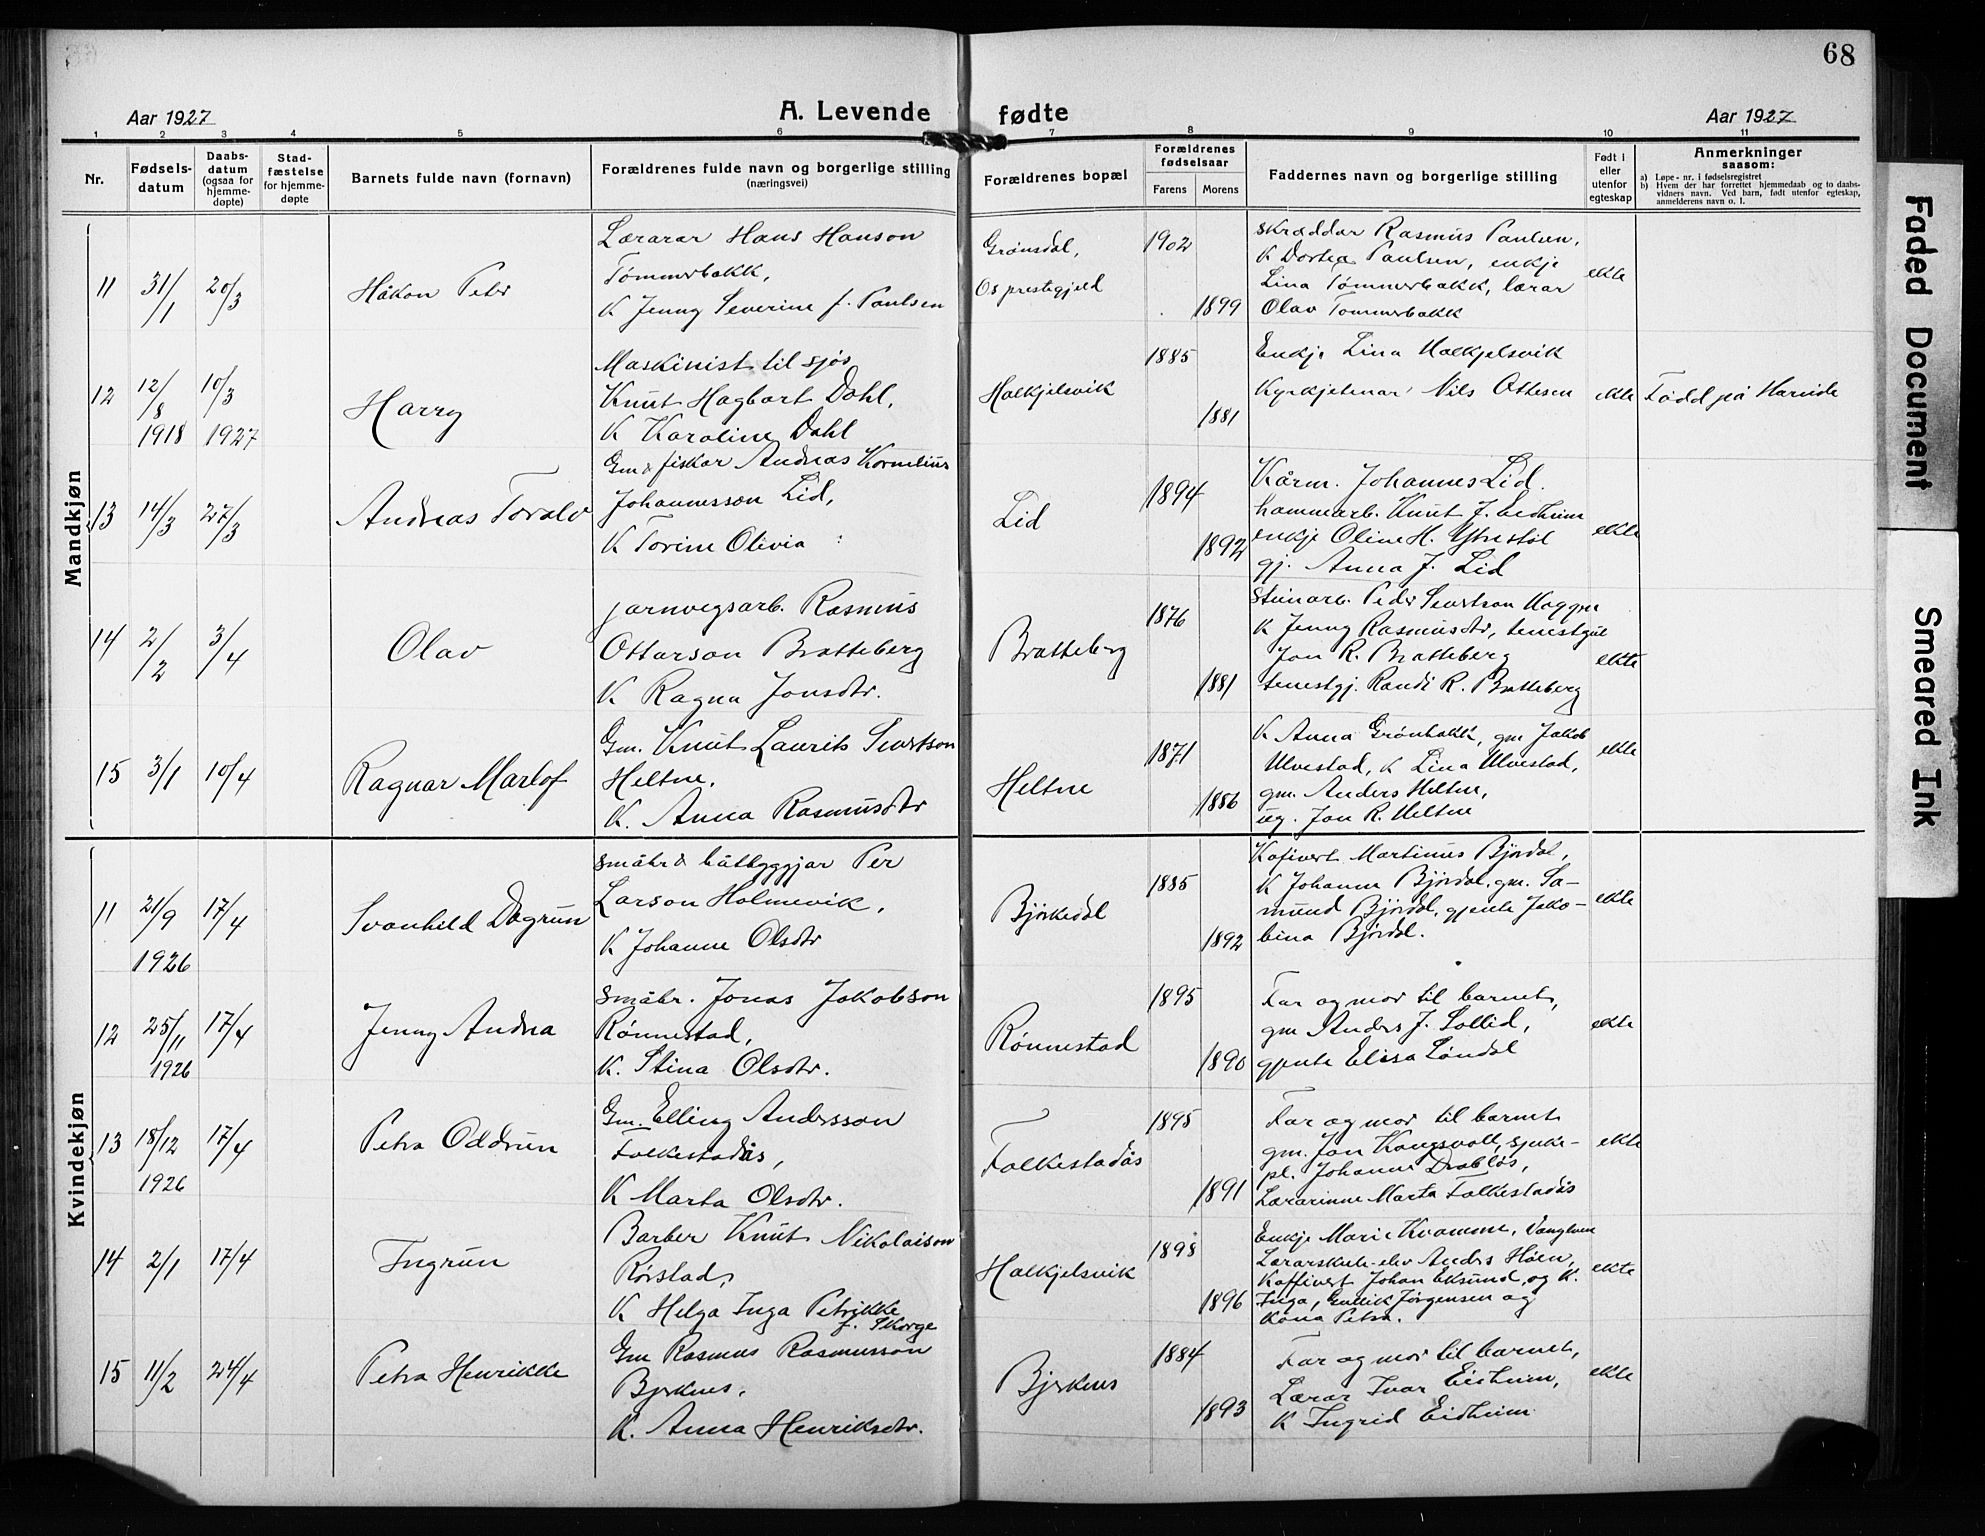 68
Aar 1927
A. Levende fødte
Aar 1927
1 2 3 4 5 6 7 8 9 10 11
Nr.
Fødsels-
datum
Daabs-
datum
(ogsaa for
hjemme-
døpte)
Stad-
fæstelse
for hjemme-
døpte
Barnets fulde navn (fornavn)
Forældrenes fulde navn og borgerlige stilling
(næringsvei)
Forældrenes bopæl
Forældrenes
fødselsaar
Farens
Morens
Faddernes navn og borgerlige stilling
Født i
eller
utenfor
egteskap
Anmerkninger
saasom:
a) Løpe-nr. i fødselsregistret
b) Hvem der har forrettet hjemmedaab og to daabs-
vidners navn. Ved barn, født utenfor egteskap,
anmelderens navn o. l.
Mandkjøn
11
31/1
20/3
Håkon Peter
Lærarar Hans Hanson
Tømmerbakk,
K Jenny Severine f. Paulsen
Grønsdal,
Os prestegjeld
1902
1899
Skræddar Rasmus Paulsen,
K Dortea Paulsen, enkje
Lina Tømmerbakk, lærar
Olav Tømmerbakk
ekte
12
12/8
1918
10/3
1927
Harry
Maskinist til sjøs
Knut Hagbart Dahl,
K Karoline Dahl
Halkjelsvik
1885
1881
Enkje Lina Halkjelsvik
Kyrkjetenar Nils Ottesen
ekte
Fødd på Hareide
13
14/3
27/3
Andreas Toralv
Gm & fiskar Andreas Kornelius
Johannesson Lid,
K Torine Olivia
Lid
1894
1892
Kårm. Johannes Lid.
hammarb. Knut J. Eidheim
enkje Oline H. Ytrestøl
gj. Anna J. Lid
ekte
14
2/2
3/4
Olav
jarnvegsarb. Rasmus
Ottarson Bratteberg
K Ragna Jonsdtr.
Bratteberg
1876
1881
Steinarb. Peder Sevrtson
K Jenny Rasmusdtr, tenestgut
Jon R. Bratteberg
tenestgj. Randi R. Bratteberg
ekte
15
3/1
10/4
Ragnar Marlof
Gm. Knut Laurits Sevrtson
Heltne,
K. Anna Rasmusdtr
Heltne
1871
1886
K Anna Grønbakk, gm Jakob
Ulvestad, K Lina Ulvestad,
gm. Anders Heltne,
ug. Jon R. Heltne
ekte
Kvindekjøn
11
21/9
1926
17/4
Svanheld Dagrun
småbr & båtbyggjar Per
Larson Holmevik,
K Johanne Olsdtr
Bjørkedal
1885
1892
Kafivert Martinus Bjørdal,
K Johanne Bjørdal, gm. Sa-
mund Bjørdal, gjente Jako-
bina Bjørdal.
ekte
12
25/11
1926
17/4
Jenny Andrea
småbr. Jonas Jakobson
Rønnestad,
K. Stina Olsdtr.
Rønnestad
1895
1890
Far og mor til barnet,
gm Anders J. Sollid,
gjente Elisa Løndal
ekte
13
18/12
1926
17/4
Petra Oddrun
Gm. Elling Andersson
Folkestadås,
K Marta Olsdtr.
Folkestadås
1895
1891
Far og mor til barnet
gm. Jon Kongsvoll, sjuke-
pl. Johanne Drabløs,
Lærarinne Marta Folkestadås
ekte
14
2/1
17/4
Ingrun
Barber Knut Nikolaison
Rørstad,
K Helga Inga Petrikke
f. Skorge
Halkjelsvik
1898
1896
Enkje Marie Kvamme,
Lærarskule-elev Anders Høen,
Kaffivert Johan Eksund, og K.
Inga, Jørgensen og
Kona Petra.
ekte
15
11/2
24/4
Petra Henrikke
Gm Rasmus Rasmusson
Bjerknes,
K. Anna Henriksdtr.
Bjerknes
1884
1893
Far og mor til barnet,
Lærar Ivar Eidheim,
K Ingrid Eidheim
ekte
Faded Document
Smeared Ink